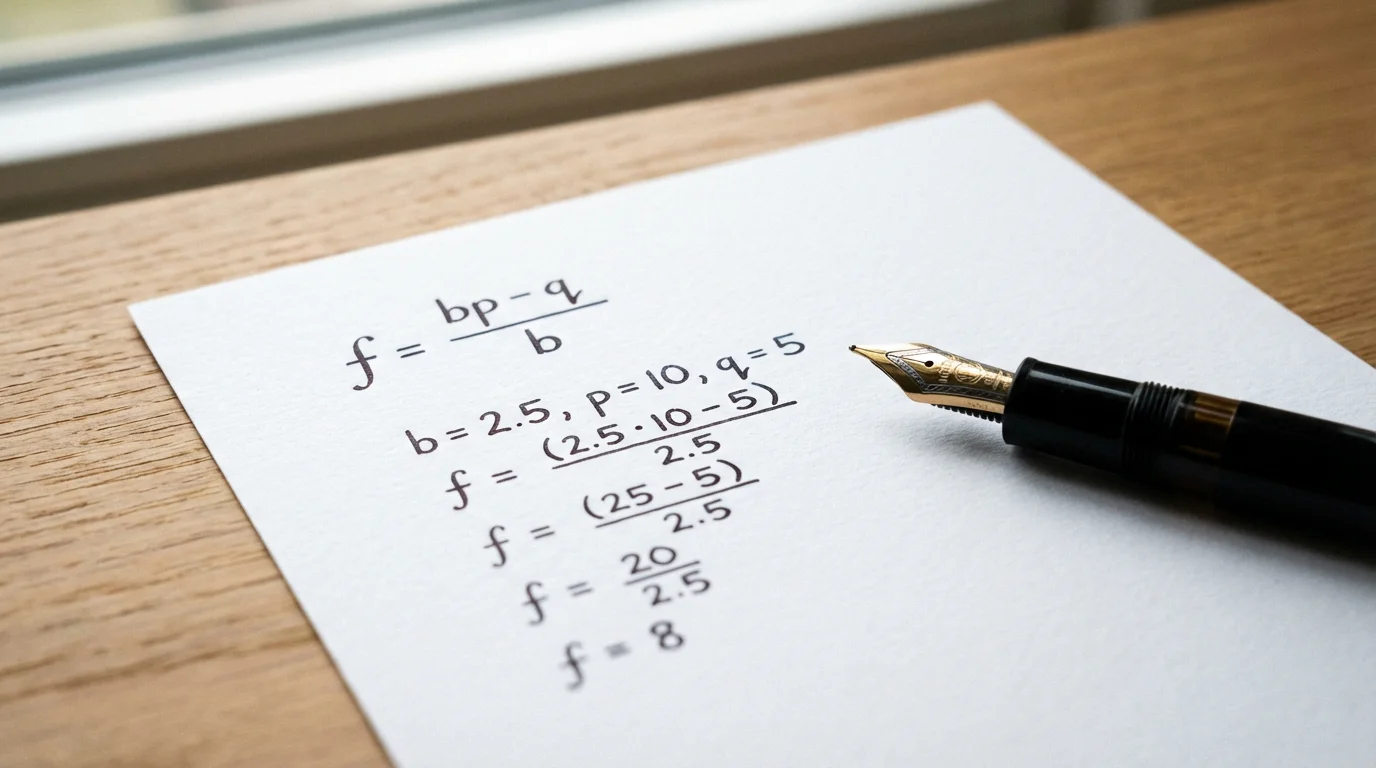 f = (bp - q) / b
b = 2.5, p = 10, q = 5
f = (2.5 · 10 - 5) / 2.5
f = (25 - 5) / 2.5
f = 20 / 2.5
f = 8